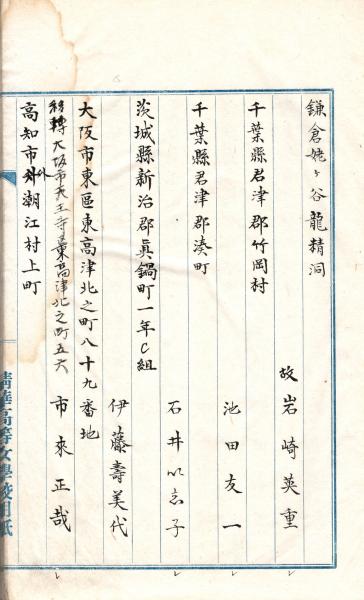 鎌倉姥ヶ谷龍精洞
故岩崎英重
千葉縣君津郡竹岡村
池田友一
千葉縣君津郡湊町
石井以志子
茨城縣新治郡眞鍋町一年C組
伊藤壽美代
大阪市東區東高津北之町八十九番地
移轉大阪市天王寺區東高津北之町五六
市來正哉
高知市外潮江村上町
清華高等女學校用紙